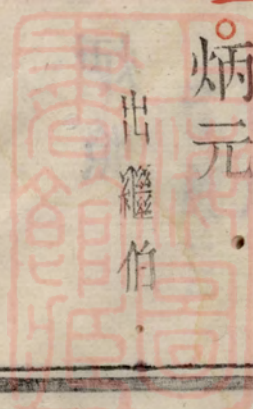 炳元
出繼伯